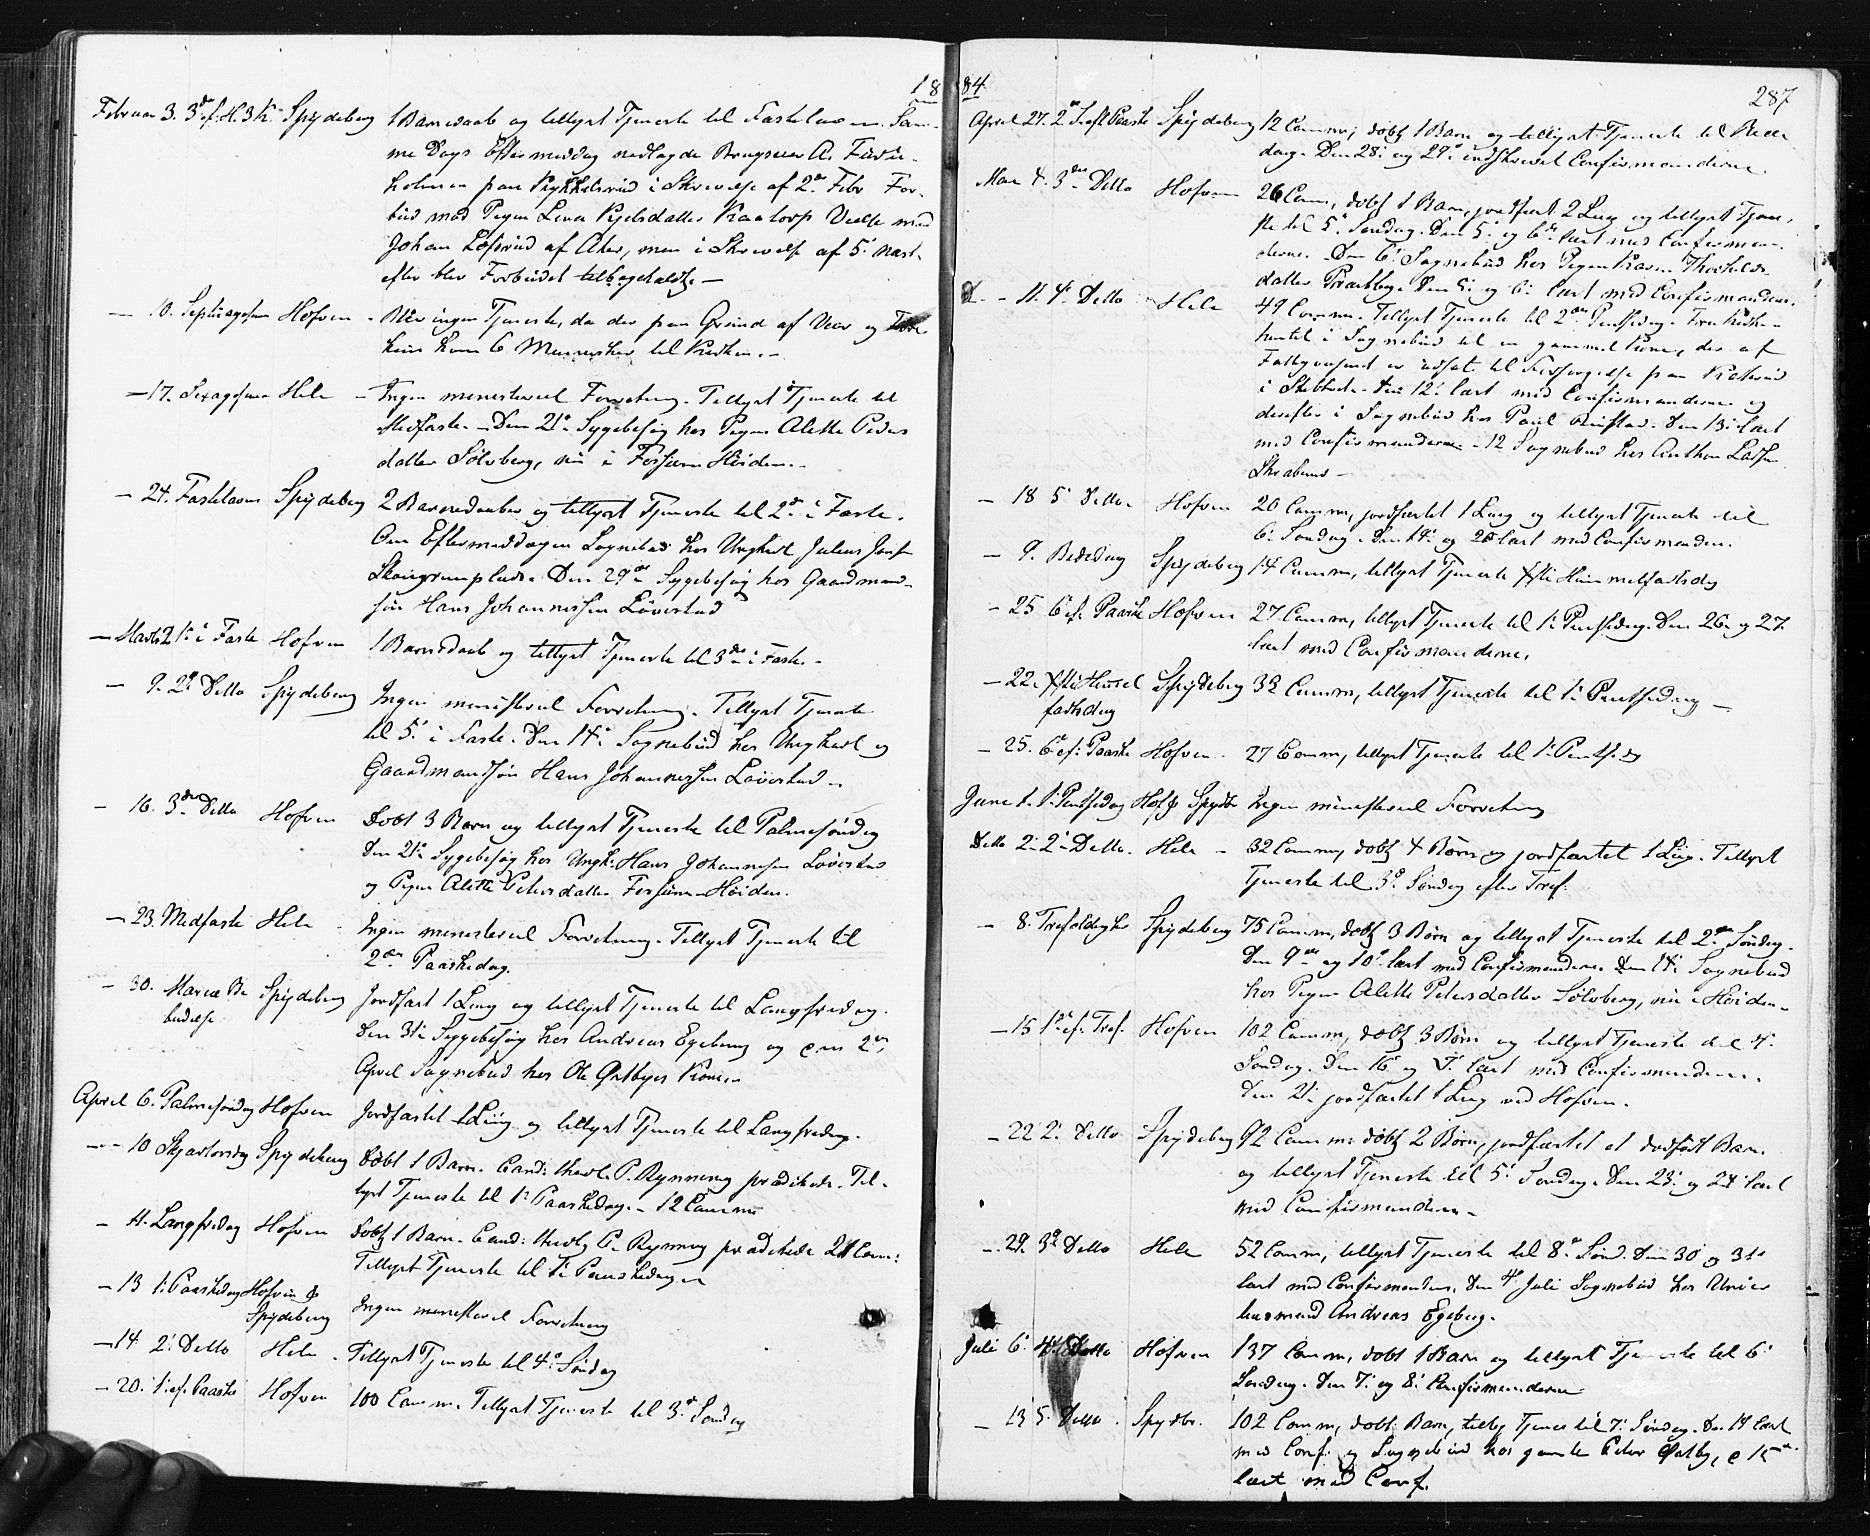 18
Februar 3. 3de ef. H. 3 K. Spydeberg 1 Barnedaab og tillyst Tjeneste til Fastelavn. Sam-
me Dags Eftermiddag nedlagde Brugseier A. Furu-
holmen paa Kykkelsrud i Skrivelse af 2den Febr For-
bud mod Pigen Lina Kjelsdatter Kaatorp Vielse med
Johan Løfsrud af Aker, men i Skrivelse af 5te næst-
efter blev Forbudet tilbagekaldt. –
– 10. Septuagesima Hofvin – Blev ingen Tjeneste, da der paa Grund af Veir og
kun kom 6 Mennesker til Kirken. –
– 17. Sexagesima Hele – Ingen ministeriel Forretning. Tillyst Tjeneste til
Midfaste – Den 21de Sygebesøg hos Pigen Alette Peders
datter Sølvberg, nu i Fossum Høiden. –
– 24. Fastelavn Spydeberg 2 Barnedaaber og tillyst Tjeneste til 2den i Faste.
Om Eftermiddagen Sognebud hos Ungkarl Julius
Den 29de Sygebesøg hos Gaardmand-
søn Hans Johannessen Løvestad
– Marts 2 1ste i Faste Hofvin 1 Barnedaab og tillyst Tjeneste til 3de i Faste. –
– 9. 2den Detto Spydeberg Ingen ministeriel Forretning. Tillyst Tjeneste
til 5te i Faste. Den 14de Sognebud hos Ungkarl og
Gaardmandssøn Hans Johannessen Løvestad –
– 16. 3de Detto Hofvin Døbt 3 Børn og tillyst Tjeneste til Palmesøndag
Den 21de Sygebesøg hos Ungk. Hans Johannesen Løvestad
og Pigen Alette Petersdatter Fossum-Høiden.
– 23 Midfaste Hele – Ingen ministeriel Forretning. Tillyst Tjeneste til
2den Paaskedag.
– 30. Mariæ Be Spydeberg Jordfæst 1 Liig og tillyst Tjeneste til Langfredag.
budelse Den 31te Sygebesøg hos Andreas Egeberg og den 2den
April Sognebud hos Ole Østbyes Kone. –
April 6. Palmesøndag Hofvin Jordfæstet 1 Liig og tillyst Tjeneste til Langfredag.
– 10 Skjærtorsdag Spydeberg Døbt 1 Barn. Cand: theol. P. Rynning prædikede. Til-
lyst Tjeneste til 1ste Paaskedag. – 12 Comm
– 11. Langfredag Hofvin Døbt 1 Barn. Cand: theol. P. Rynning prædikede 21 Com:
Tillyst Tjeneste til 1ste Paaskedag
– 13 1: Paaskedag Hofvin &
Spydeberg Ingen ministeriel Forretning
– 14 2: Detto Hele – Tillyst Tjeneste til 4de Søndag
– 20. 1: ef. Paaske Hofvin 100 Comm. Tillyst Tjeneste til 3de Søndag
84
287
April 27. 2den S. eft Paaske Spydeberg 12 Comm; døbt 1 Barn og tillyst Tjeneste til Bede
dag. Den 28: og 29de indskrevet Confirmanderne
Mai 4. 3de Detto Hofvin 26 Com, døbt 1 Barn, jordfæst 2 Liig og tillyst Tjene-
ste til 5te Søndag. Den 5: og 6te læst med Confirman-
derne. Den 6: Sognebud hos Pigen Karen Thorkilds
datter Den 5: og 6: læst med Confirmanderne.
– 11. 4: Detto Hele 49 Comm. Tillyst Tjeneste til 2den Pintsedag. Fra Kirken
hentet i Sognebud til en gammel Kone, der af
Fattigvæsenet er udsat til Forsørgelse paa
i Den 12: læst med Confirmanderne og
derefter i Sognebud hos Paul Den 13: læst
med Confirmanderne. – 12 Sognebud hos Anthon
– 18 5: Detto. Hofvin 20 Comm, jordfæstet 1 Liig og tillyst Tjeneste til
6: Søndag. Den 19: og 20 læst med Confirmanden.
– 9. Bededag Spydeberg 14 Comm, tillyst Tjeneste Xsti Himmelfartsdag
– 25 6: ef. Paaske Hofvin 27 Comm, tillyst Tjeneste til 1: Pintsedag. Den 26: og 27.
læst med Confirmanderne.
– 22. Xsti Himmel Spydeberg 32 Comm, tillyst Tjeneste til 1: Pintsedag –
fartsdag
– 25. 6: ef: Paaske Hofvin. 27 Comm, tillyst Tjeneste til 1: Pintsedag
Juni 1. 1: Pintsedag Hof & Spydbr Ingen ministeriel Forretning
Detto 2: 2: Detto. Hele – 32 Comm, døbt 4 Børn og jordfæstet 1 Liig. Tillyst
Tjeneste til 3de Søndag efter Tref.
– 8. Trefoldighs Spydeberg 75 Comm, døbt 3 Børn og tillyst Tjeneste til 2den Søndag.
Den 9de og 10de læst med Confirmanderne. Den 14: Sognebud
hos Pigen Alette Petersdatter Sølvberg, nu i Høiden. –
– 15 1ste ef. Tref. Hofvin 102 Comm, døbt 3 Børn og tillyst Tjeneste til 4:
Søndag. Den 16 og læst med Confirmanderne.
Den 21: jordfæstet 1 Liig ved Hofvin.
– 22 2: Detto Spydeberg 92 Comm: døbt 2 Børn, jordfæstet et dødfødt Barn
og tillyst Tjeneste til 5: Søndag. Den 23: og 24 læst
med Confirmanderne –
– 29. 3de Detto Hele 52 Comm, tillyst Tjeneste til 8de Sønd. Den 30 og 31te
læst med Confirmanderne. Den 4de Juli Sognebud hos
husmand Andreas Egeberg.
Juli 6: 4de Detto Hofvin 137 Comm, døbt 1 Barn og tillyst Tjeneste til 6:
Søndag. Den 7: og 8: Confirmanderne
– 13 5: Detto Spydbr. 102 Comm, døbt Barn, tillyst Tjenes til 7: Søndag. Den 14 læst
med Conf: og Sognebud hos gamle Peter Østby, d 15de
læst med Conf.